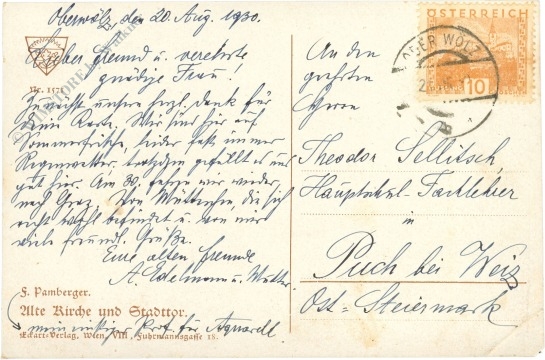 Oberwölz, den 20. Aug. 1930.
Lieber Freund u. verehrte
gnädige Frau!
Nr. 1572
Zunächst unsern herzl. Dank für
Karte. Wir sind hier auf
Sommerfrische, leider fast immer
Regenwetter. Trotzdem gefällt es uns
gut hier. Am 30. fahren wir wieder
nach Graz. Von Mütterchen, die sich
recht wohl befindet u. von mir
viele freundl. Grüße.
Eure alten Freunde
A. Edelmann u. Mutter
F. Pamberger.
Alte Kirche und Stadttor.
mein Prof. für Aquarell
Eckart-Verlag, Wien, VIII, Fuhrmannsgasse 18.
ÖSTERREICH
10
OBERWÖLZ
An den
geehrten
Herrn
Theodor Sellitsch
Hauptschul-Fachlehrer
in
Puch bei Weiz
Ost-Steiermark